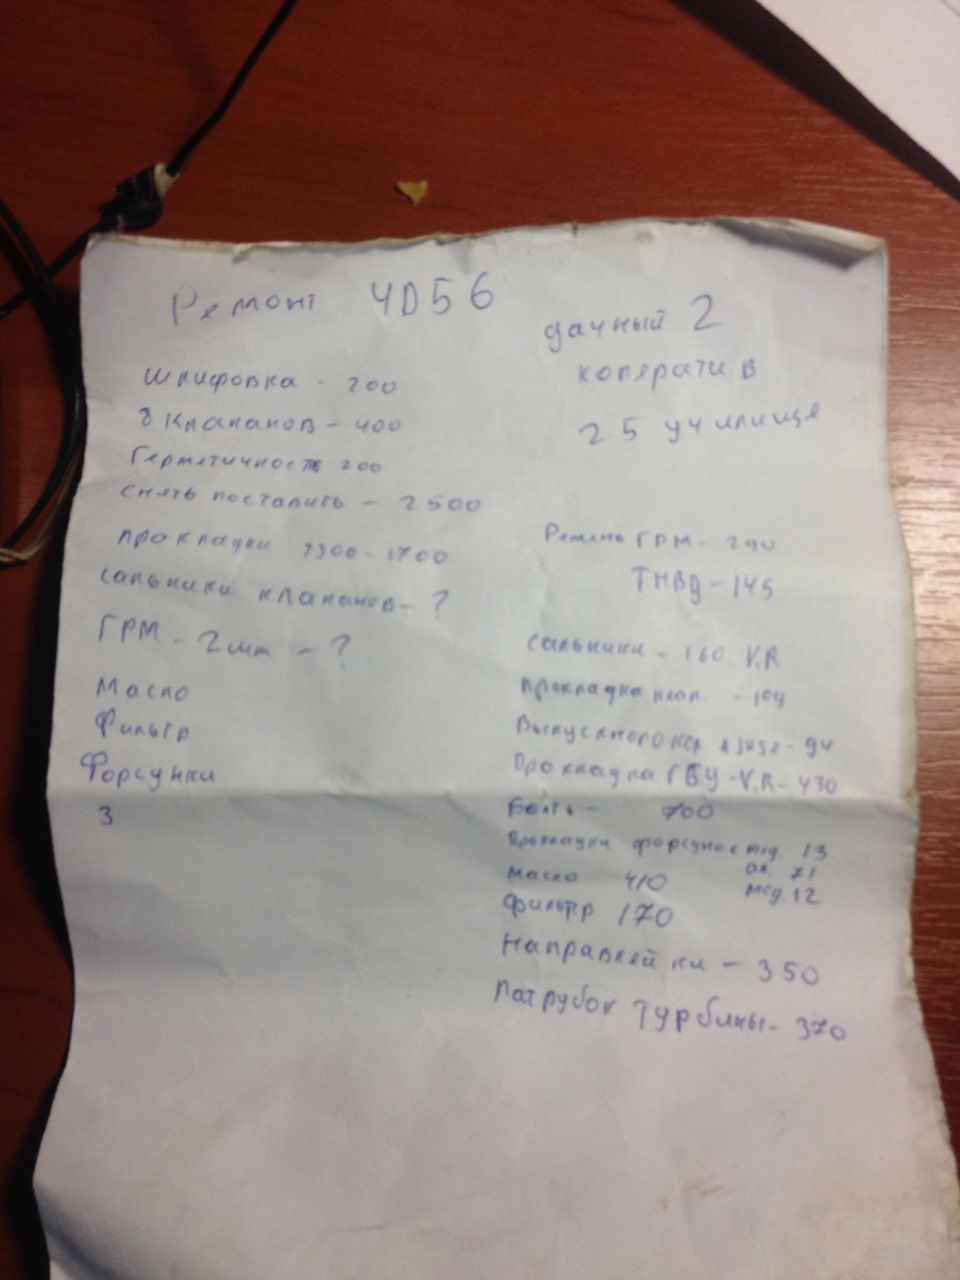 Ремонт 4D56
Шлифовка - 200
8 клапанов - 400
Герметичность 200
Снять поставить - 2500
прокладки 1300-1700
сальники клапанов - ?
ГРМ - 2 шт - ?
Масло
Фильтр
Форсунки
3
дачный 2
коператив
25 училище
Ремень ГРМ - 290
ТНВД - 145
Сальники - 160 V.R
прокладка клап. - 104
Выпускного - 94
Прокладка ГБЦ - V.R - 430
Болты - 700
Прокладки форсунок мед. 13
ал. 71
мед. 12
масло 410
фильтр 170
Направляй кл - 350
Патрубок турбины - 370